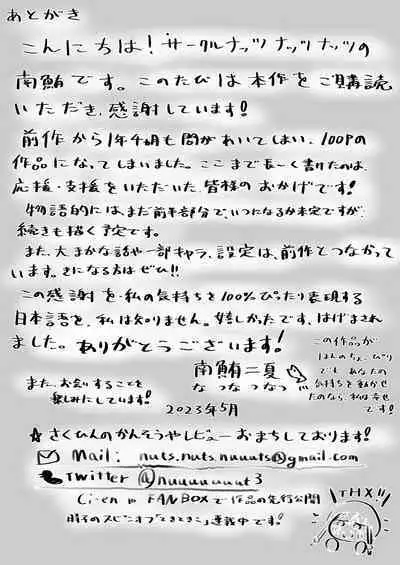 あとがき
こんにちは！サークルナッツナッツナッツの
南鮪です。このたびは本作をご購読
いただき、感謝しています！
前作から1年4ヶ月も間があいてしまい、100Pの
作品になってしまいました。ここまで長〜く書けたのは、
応援・支援をいただいた、皆様のおかげです！
物語的にはまだ前半部分で、いつになるか未定ですが、
続きも描く予定です。
また、大まかな話や一部キャラ、設定は、前作とつながって
います。気になる方はぜひ!!
この感謝を、私の気持ちを100%ぴったり表現する
日本語を、私は知りません。嬉しかったです、はげまされ
ました。ありがとうございます！
南鮪二夏
なつなつなつ
また、お会いすることを
楽しみにしています！
2023年5月
この作品が
ほんのちょっぴり
でも あなたの
気持ちを動かせ
たのなら、私は幸せ
です！
☆さくひんのかんそうやレビューおまちしております！
Mail: nuts.nuts.nuuuts@gmail.com
Twitter @nuuuuuuut3
Ci-en や FANBOXで作品の先行公開
勝子のスピンオフ「ときときこ」連載中です！
THX!!